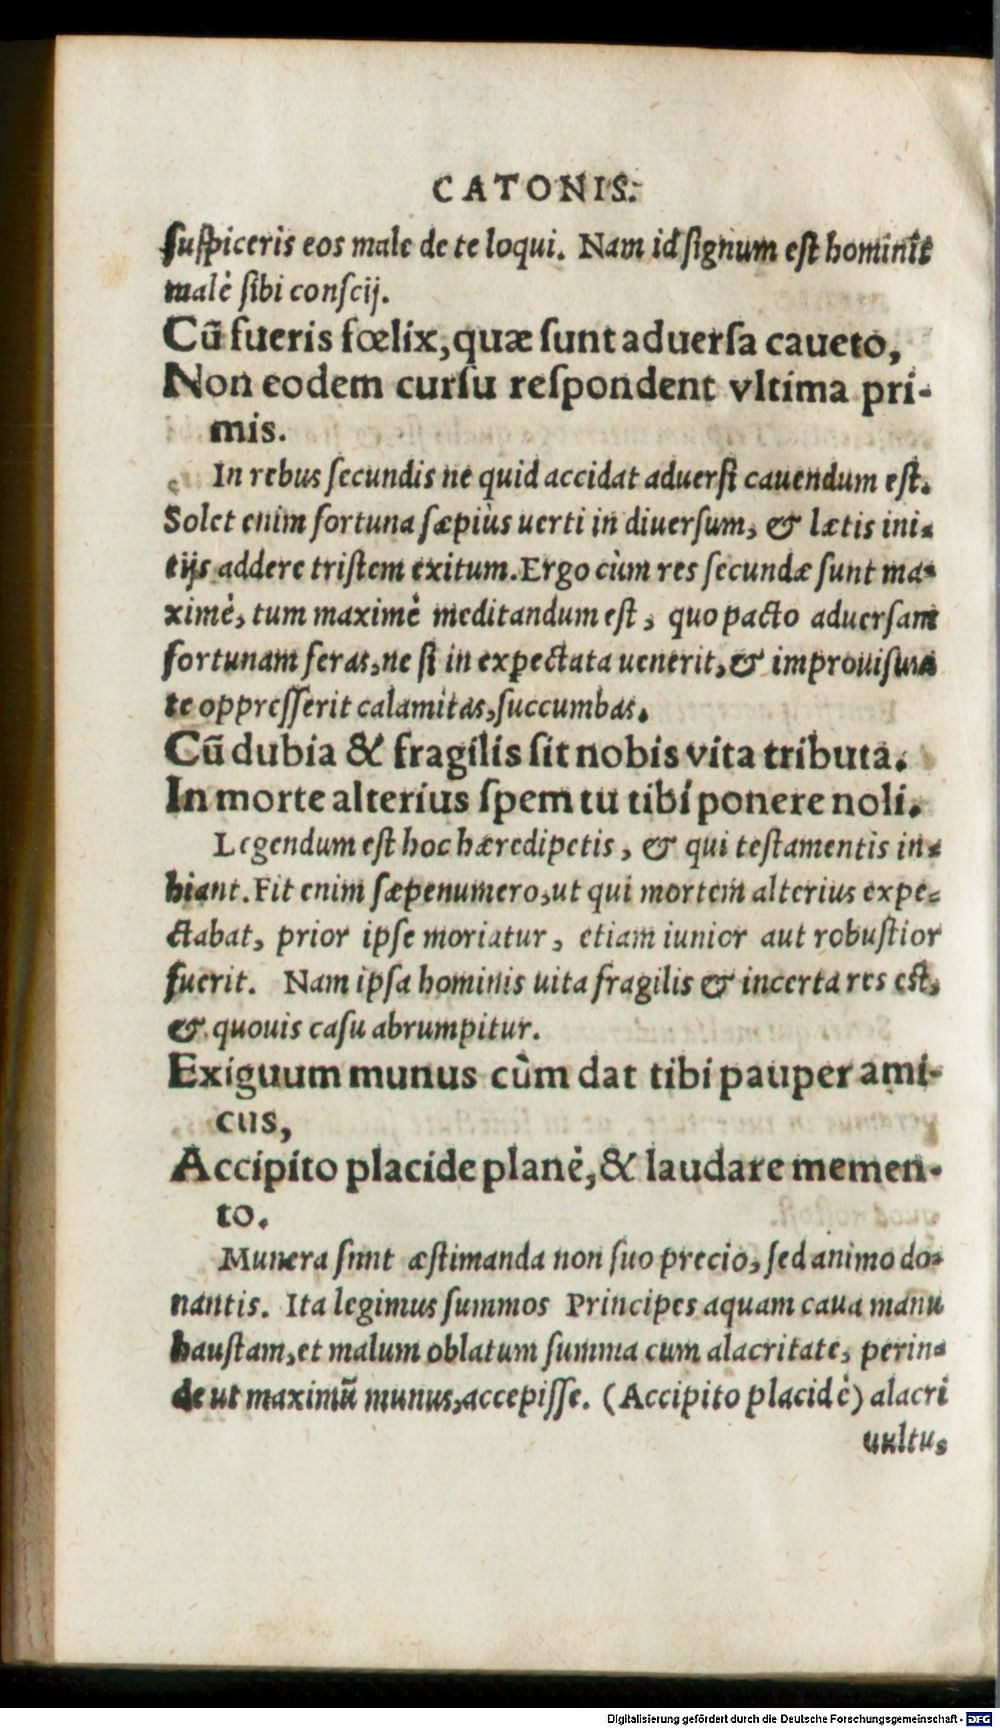 CATONIS.
ſuſpiceris eos male de te loqui. Nam id ſignum eſt hominis
malè ſibi conſcij.
Cū fueris fœlix, quæ ſunt aduerſa caueto,
Non eodem curſu reſpondent vltima pri-
mis.
In rebus ſecundis ne quid accidat aduerſi cauendum eſt.
Solet enim fortuna ſæpiùs uerti in diuerſum, & lætis ini-
tijs addere triſtem exitum. Ergo cùm res ſecundæ ſunt ma-
ximè, tum maximè meditandum eſt, quo pacto aduerſam
fortunam feras, ne ſi in expectata uenerit, & improuiſum
te oppreſſerit calamitas, ſuccumbas.
Cū dubia & fragilis ſit nobis vita tributa.
In morte alterius ſpem tu tibi ponere noli.
Legendum eſt hoc hæredipetis, & qui teſtamentis in-
hiant. Fit enim ſæpenumero, ut qui mortem alterius expe-
ctabat, prior ipſe moriatur, etiam iunior aut robuſtior
fuerit. Nam ipſa hominis uita fragilis & incerta res eſt,
& quouis caſu abrumpitur.
Exiguum munus cùm dat tibi pauper ami-
cus,
Accipito placide planè, & laudare memen-
to.
Munera ſunt æſtimanda non ſuo precio, ſed animo do-
nantis. Ita legimus ſummos Principes aquam caua manu
hauſtam, et malum oblatum ſumma cum alacritate, perin-
de ut maximū munus, accepiſſe. (Accipito placidè) alacri
uultu,
Digitalisierung gefördert durch die Deutsche Forschungsgemeinschaft - DFG